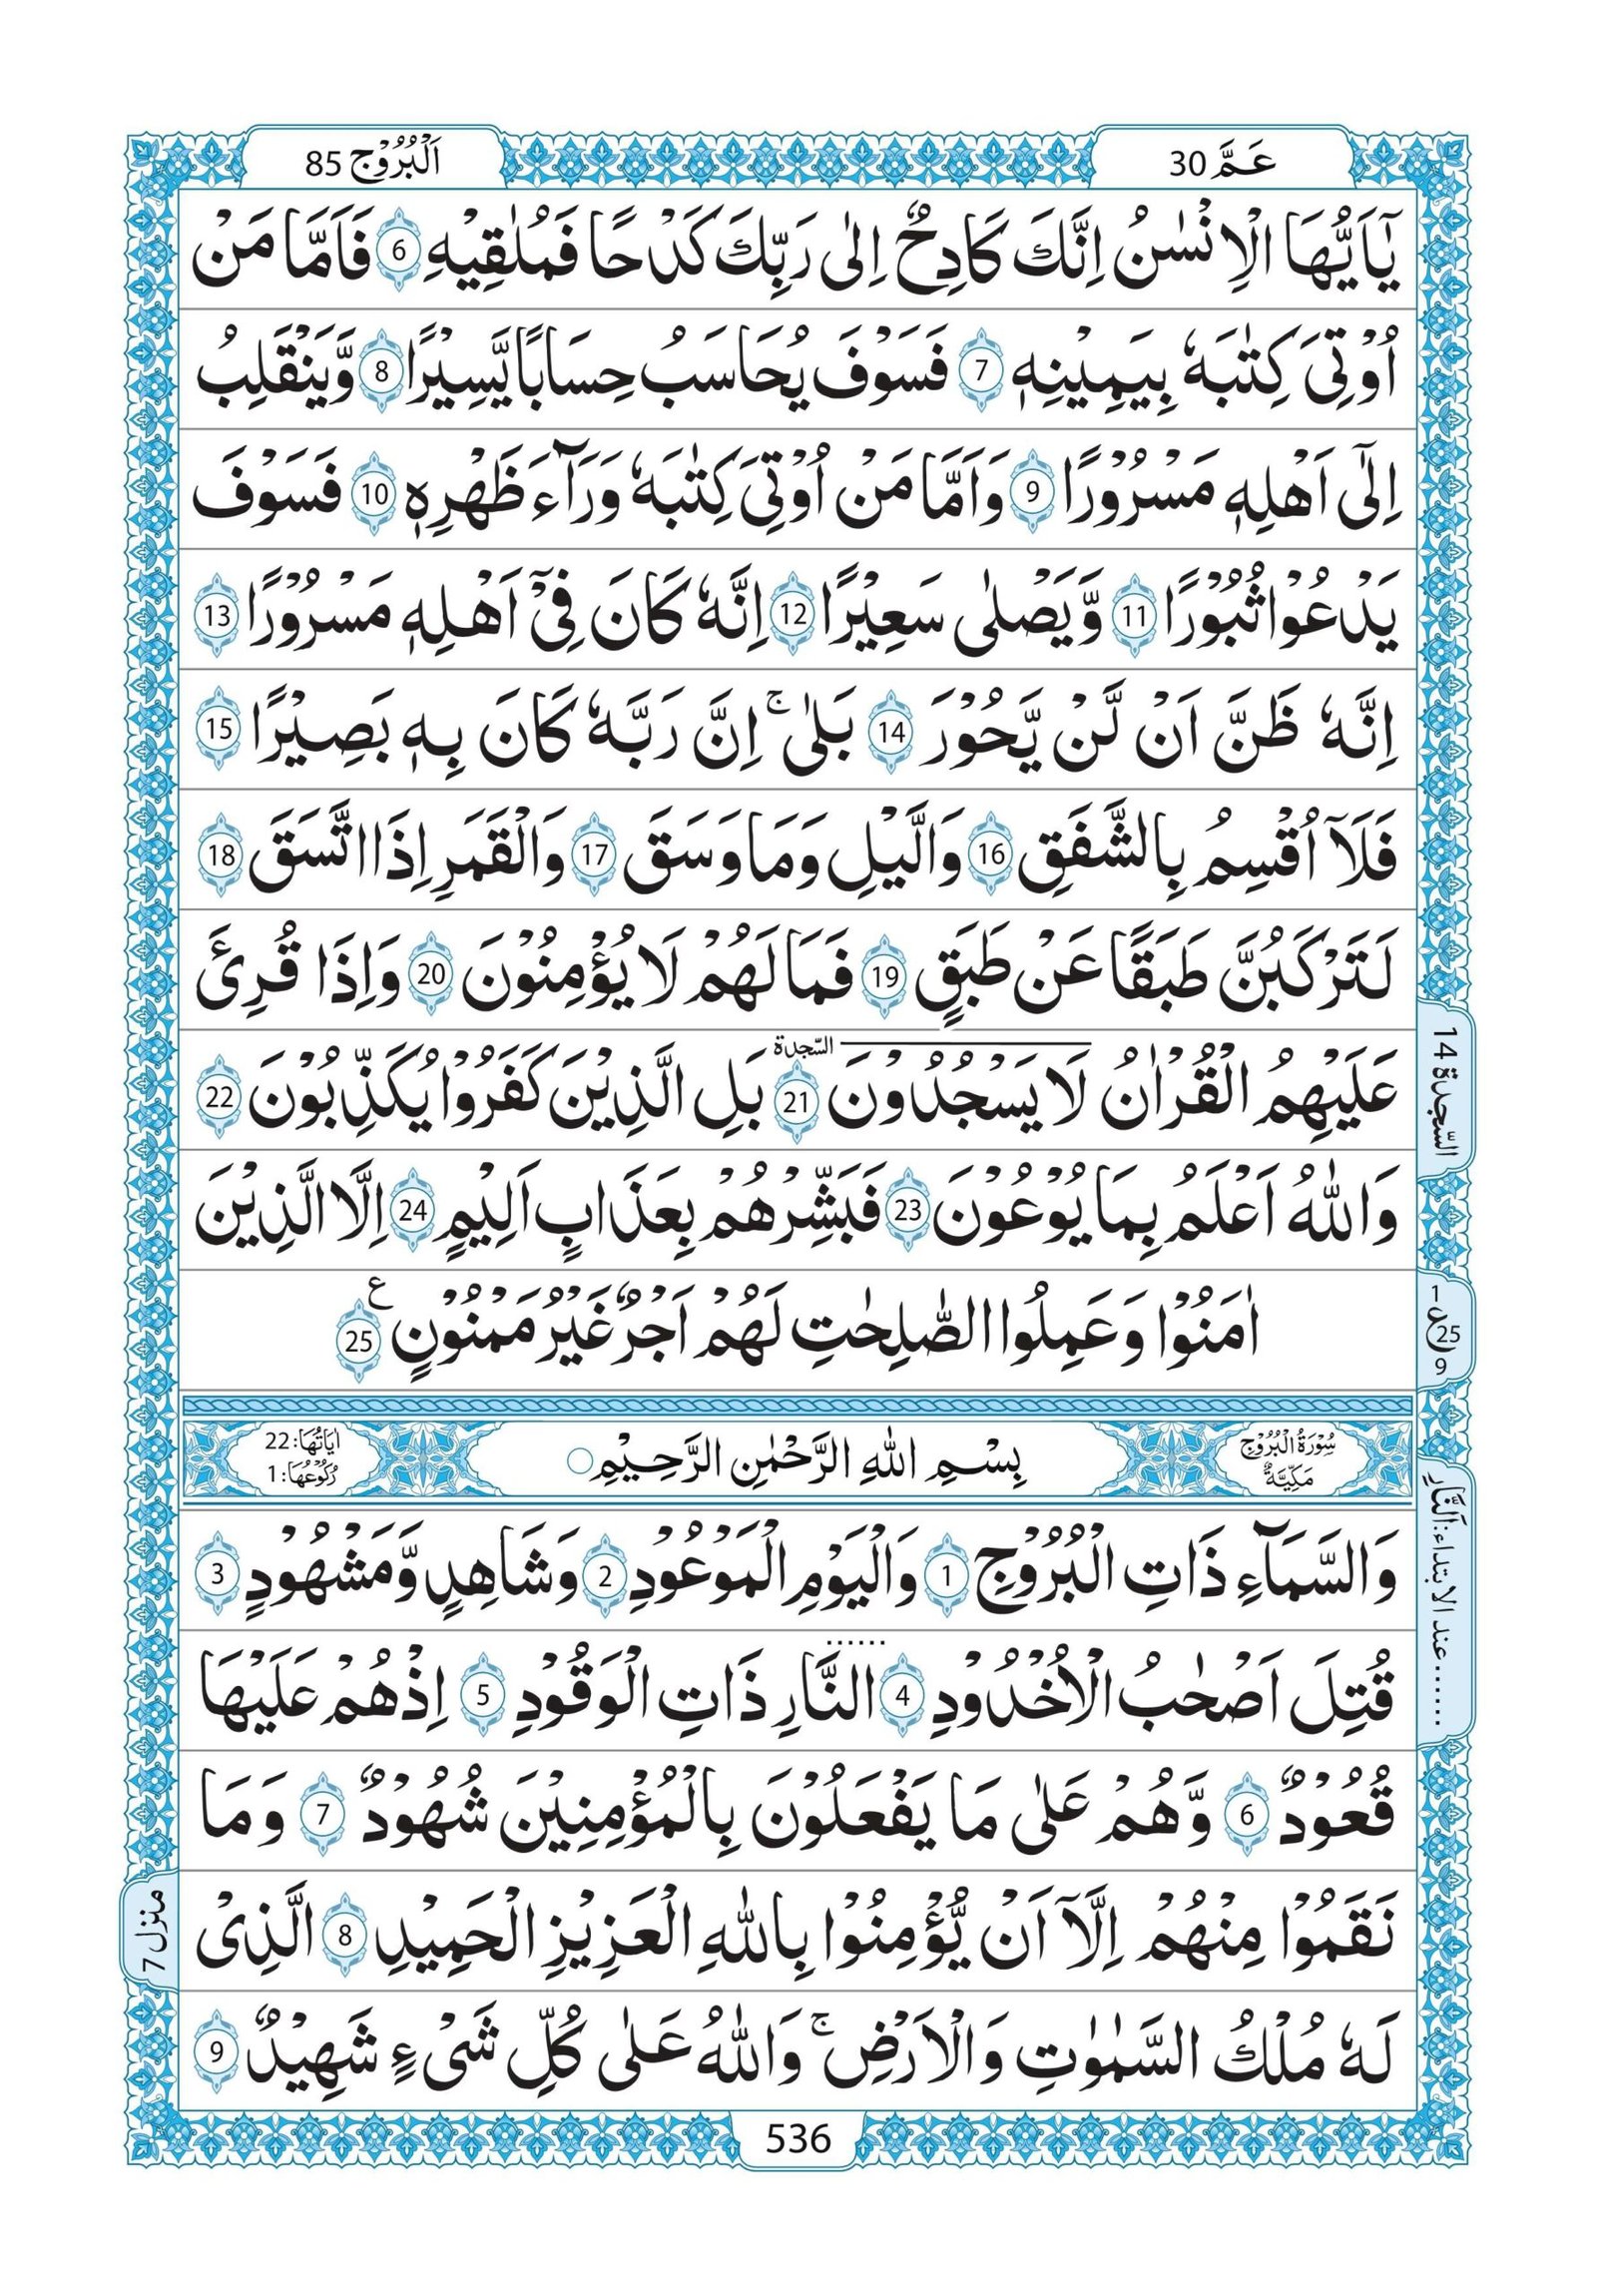 عَمَّ 30
اَلْبُرُوْج 85
يٰۤاَيُّهَا الْاِنْسٰنُ اِنَّكَ كَادِحٌ اِلٰى رَبِّكَ كَدْحًا فَمُلٰقِيْهِ 6 فَاَمَّا مَنْ
اُوْتِىَ كِتٰبَهٗ بِيَمِيْنِهٖ 7 فَسَوْفَ يُحَاسَبُ حِسَابًا يَّسِيْرًا 8 وَّيَنْقَلِبُ
اِلٰٓى اَهْلِهٖ مَسْرُوْرًا 9 وَاَمَّا مَنْ اُوْتِىَ كِتٰبَهٗ وَرَآءَ ظَهْرِهٖ 10 فَسَوْفَ
يَدْعُوْا ثُبُوْرًا 11 وَّيَصْلٰى سَعِيْرًا 12 اِنَّهٗ كَانَ فِىْۤ اَهْلِهٖ مَسْرُوْرًا 13
اِنَّهٗ ظَنَّ اَنْ لَّنْ يَّحُوْرَ 14 بَلٰىۚ اِنَّ رَبَّهٗ كَانَ بِهٖ بَصِيْرًا 15
فَلَاۤ اُقْسِمُ بِالشَّفَقِ 16 وَالَّيْلِ وَمَا وَسَقَ 17 وَالْقَمَرِ اِذَا اتَّسَقَ 18
لَتَرْكَبُنَّ طَبَقًا عَنْ طَبَقٍ 19 فَمَا لَهُمْ لَا يُؤْمِنُوْنَ 20 وَاِذَا قُرِئَ
عَلَيْهِمُ الْقُرْاٰنُ لَا يَسْجُدُوْنَ السّجدة 21 بَلِ الَّذِيْنَ كَفَرُوْا يُكَذِّبُوْنَ 22
السّجدة 14
وَاللّٰهُ اَعْلَمُ بِمَا يُوْعُوْنَ 23 فَبَشِّرْهُمْ بِعَذَابٍ اَلِيْمٍ 24 اِلَّا الَّذِيْنَ
اٰمَنُوْا وَعَمِلُوا الصّٰلِحٰتِ لَهُمْ اَجْرٌ غَيْرُ مَمْنُوْنٍ ع 25
1 ع 25 9
سُوْرَةُ الْبُرُوْجِ
مَكِّيَّةٌ
بِسْمِ اللّٰهِ الرَّحْمٰنِ الرَّحِيْمِ
اٰيَاتُهَا: 22
رُكُوْعُهَا: 1
وَالسَّمَآءِ ذَاتِ الْبُرُوْجِ 1 وَالْيَوْمِ الْمَوْعُوْدِ 2 وَشَاهِدٍ وَّمَشْهُوْدٍ 3
قُتِلَ اَصْحٰبُ الْاُخْدُوْدِ 4 النَّارِ ذَاتِ الْوَقُوْدِ 5 اِذْ هُمْ عَلَيْهَا
اَلنَّارِ: عند الابتداء ......
قُعُوْدٌ 6 وَّهُمْ عَلٰى مَا يَفْعَلُوْنَ بِالْمُؤْمِنِيْنَ شُهُوْدٌ 7 وَمَا
نَقَمُوْا مِنْهُمْ اِلَّاۤ اَنْ يُّؤْمِنُوْا بِاللّٰهِ الْعَزِيْزِ الْحَمِيْدِ 8 الَّذِىْ
منزل 7
لَهٗ مُلْكُ السَّمٰوٰتِ وَالْاَرْضِۚ وَاللّٰهُ عَلٰى كُلِّ شَىْءٍ شَهِيْدٌ 9
536